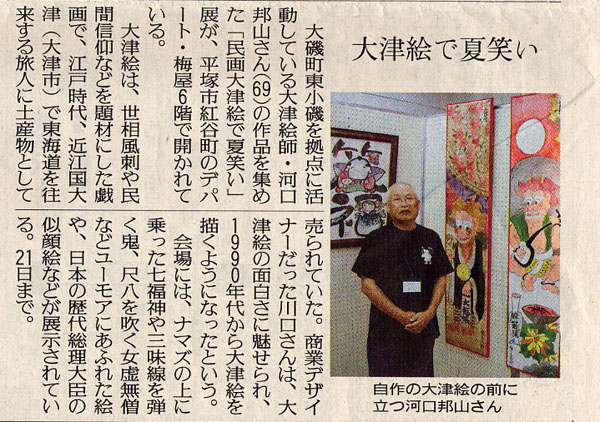 大津絵で夏笑い
大磯町東小磯を拠点に活
動している大津絵師・河口
邦山さん(69)の作品を集め
た「民画大津絵で夏笑い」
展が、平塚市紅谷町のデパ
ート・梅屋6階で開かれて
いる。
大津絵は、世相風刺や民
間信仰などを題材にした戯
画で、江戸時代、近江国大
津(大津市)で東海道を往
来する旅人に土産物として
売られていた。商業デザイ
ナーだった川口さんは、大
津絵の面白さに魅せられ、
1990年代から大津絵を
描くようになったという。
会場には、ナマズの上に
乗った七福神や三味線を弾
く鬼、尺八を吹く女虚無僧
などユーモアにあふれた絵
や、日本の歴代総理大臣の
似顔絵などが展示されてい
る。21日まで。
自作の大津絵の前に
立つ河口邦山さん